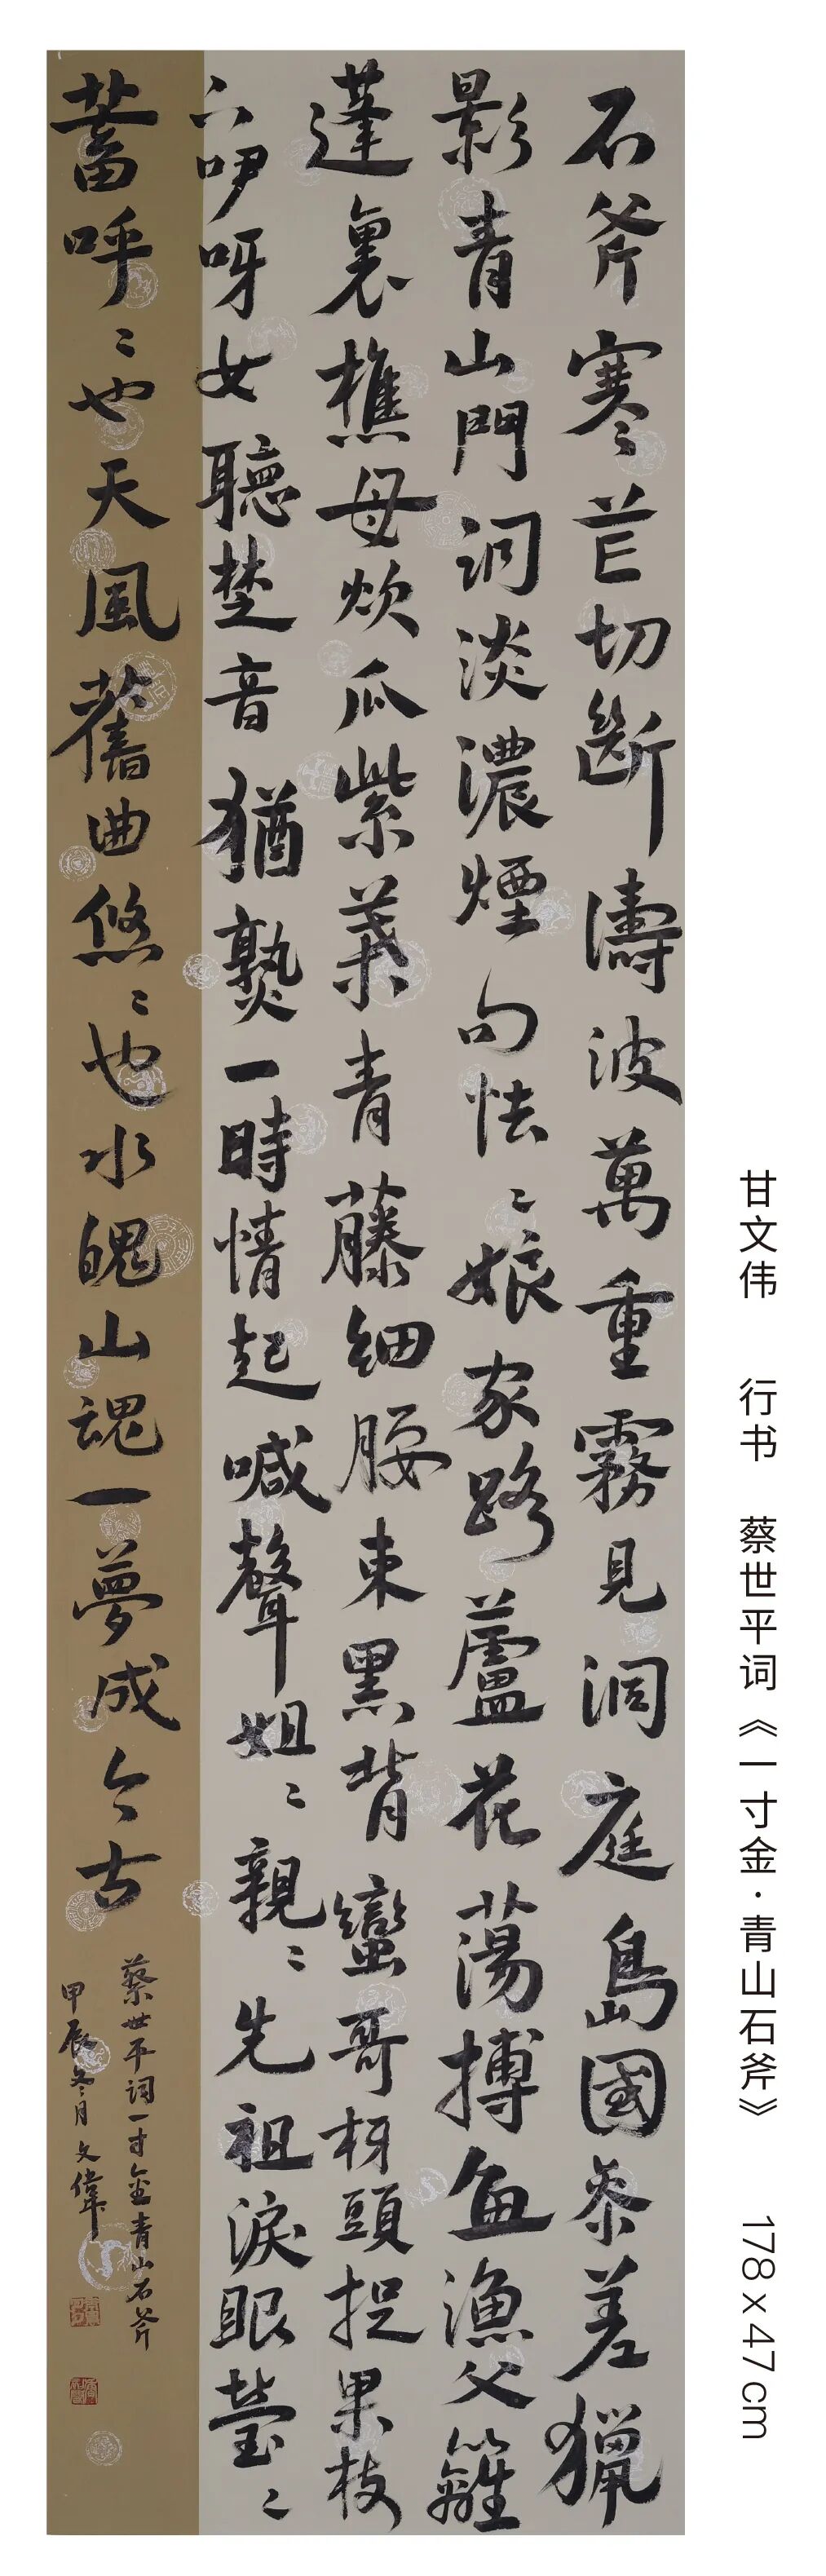 石斧寒〻芒切斷濤波萬重霧見洞庭島國參差獵
影青山門洞淡濃煙句怯〻娘家路蘆花蕩搏魚漁父籬
蓬裏樵母炊瓜紫葉青藤細腰束黑背蠻哥枒頭捉果枝
下咿呀女聽楚音猶熟一時情起喊聲姐〻親〻先祖淚眼瑩〻
蓄呼〻也天風舊曲悠〻也水魄山魂一夢成今古
蔡世平词一寸金青山石斧
甲辰冬月文偉
甘文伟 行书 蔡世平词《一寸金·青山石斧》 178 x 47 cm